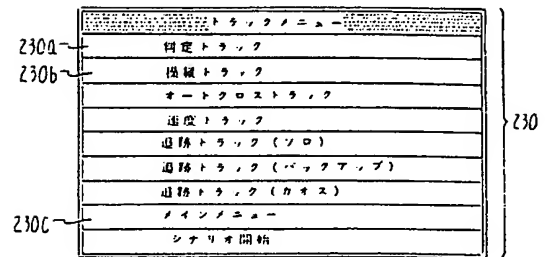 トラックメニュー
230a
判定トラック
230b
操縦トラック
オートクロストラック
230
速度トラック
追跡トラック(ソロ)
追跡トラック(バックアップ)
追跡トラック(カオス)
230c
メインメニュー
シナリオ開始